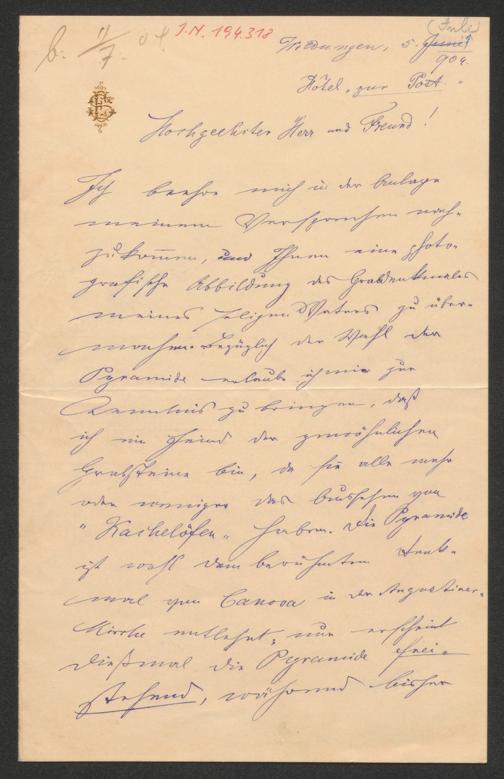 b. 11/7. 04.
I.N. 194.318
(Juli)
Wildungen, 5. Juni
904.
Hôtel "zur Post".
Hochgeehrter Herr und Freund!
Ich beehre mich in der Anlage
meinem Versprechen nach-
zukommen, und Ihnen eine photo-
grafische Abbildung des Grabdenkmales
meines seligen Vaters zu über-
machen. Bezüglich der Wahl der
Pyramide erlaube ich mir zur
Kenntnis zu bringen, daß
ich ein Feind der gewöhnlichen
Grabsteine bin, da sie alle mehr
oder weniger das Aussehen von
"Kachelöfen" haben. Die Pyramide
ist wohl dem berühmten Denk-
mal von Canova in der Augustiner-
Kirche entlehnt; nur erscheint
dießmal die Pyramide frei-
stehend, während bisher